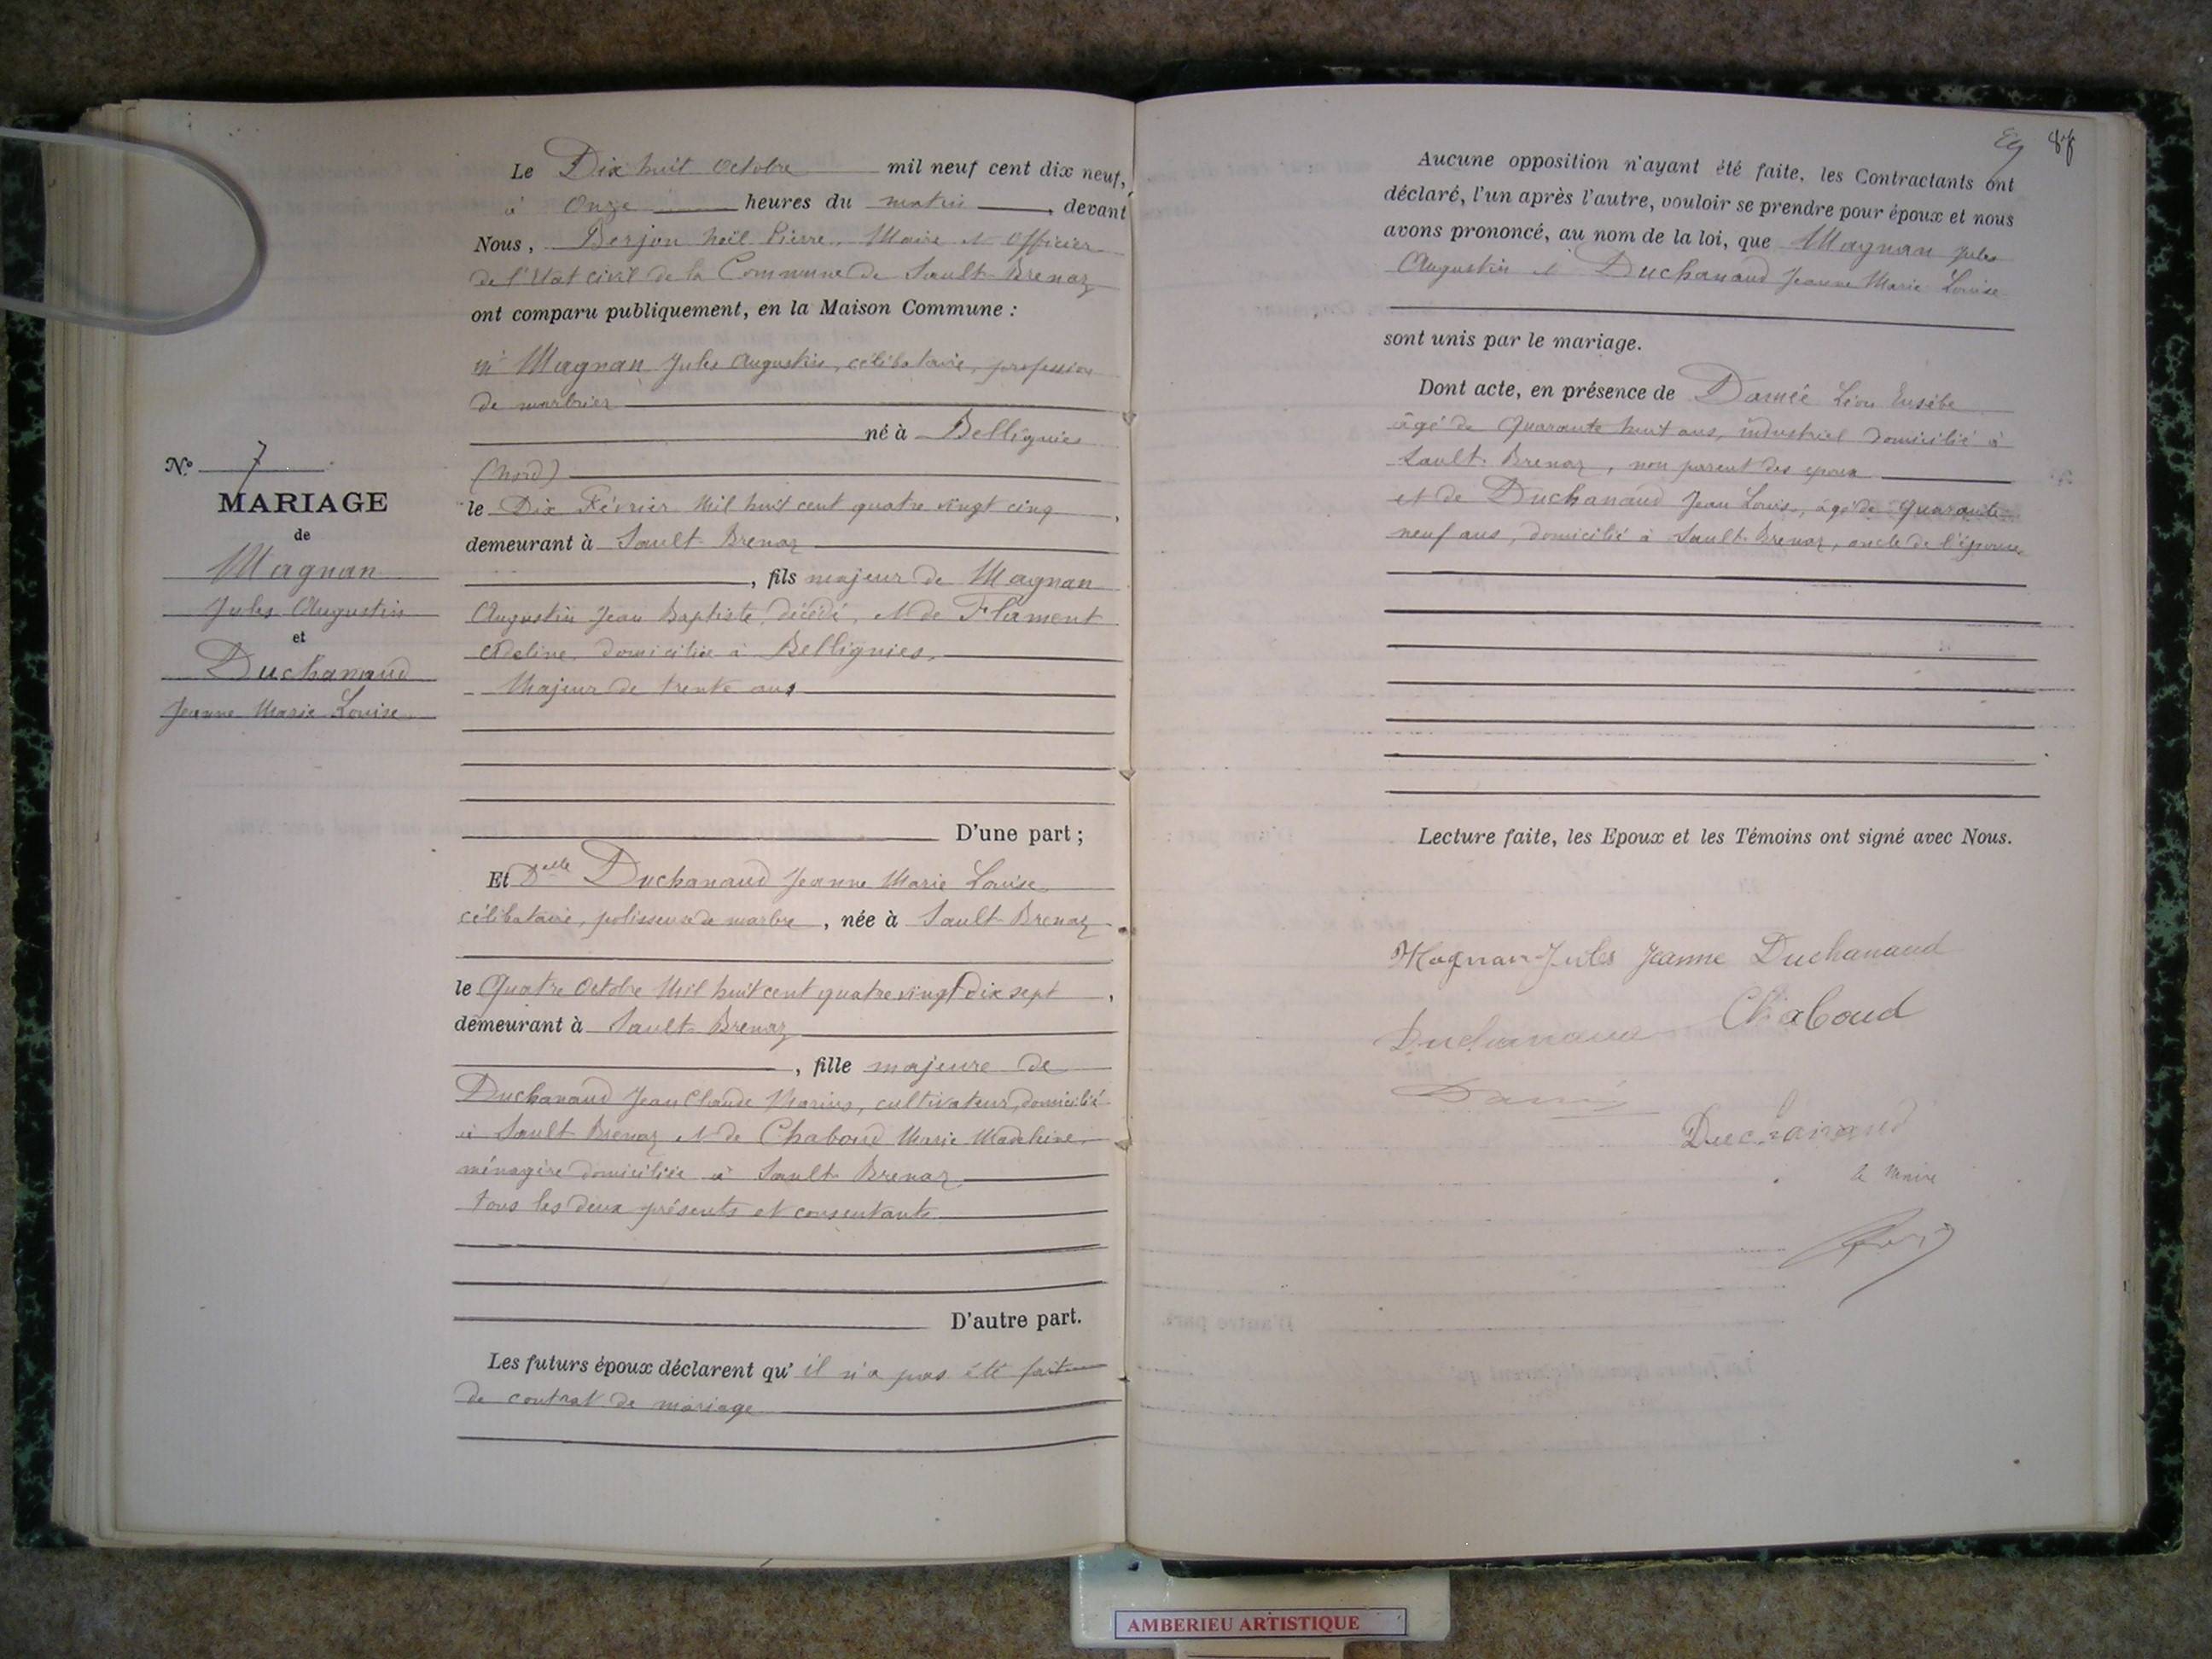 Le Dix huit Octobre mil neuf cent dix neuf,
à Onze heures du matin, devant
Nous, Berjon Noël Pierre, Maire et Officier
de l'Etat civil de la Commune de Sault-Brenaz
ont comparu publiquement, en la Maison Commune :
Mr Magnan Jules Augustin, célibataire, profession
de marbrier
né à Bellignies
(Nord)
le Dix Février Mil huit cent quatre vingt cinq,
demeurant à Sault-Brenaz
, fils majeur de Magnan
Augustin Jean Baptiste, décédé, et de Flament
Adeline, domiciliée à Bellignies,
Majeur de trente ans
D'une part ;
Nº 7
MARIAGE
de
Magnan
Jules Augustin
et
Duchanaud
Jeanne Marie Louise
Et Delle Duchanaud Jeanne Marie Louise
célibataire, polisseuse de marbre, née à Sault-Brenaz
le Quatre Octobre Mil huit cent quatre vingt Dix sept,
demeurant à Sault-Brenaz
, fille majeure de
Duchanaud Jean Claude Marius, cultivateur, domicilié
à Sault-Brenaz et de Chaboud Marie Madeleine,
ménagère domiciliée à Sault-Brenaz
tous les deux présents et consentants
D'autre part.
Les futurs époux déclarent qu'il n'a pas été fait
de contrat de mariage
87
Aucune opposition n'ayant été faite, les Contractants ont
déclaré, l'un après l'autre, vouloir se prendre pour époux et nous
avons prononcé, au nom de la loi, que Magnan Jules
Augustin et Duchanaud Jeanne Marie Louise
sont unis par le mariage.
Dont acte, en présence de Damée Léon Eusèbe
âgé de Quarante huit ans, industriel domicilié à
Sault-Brenaz, non parent des époux
et de Duchanaud Jean Louis, âgé de Quarante
neuf ans, domicilié à Sault-Brenaz, oncle de l'épouse
Lecture faite, les Epoux et les Témoins ont signé avec Nous.
Magnan Jules Jeanne Duchanaud
Duchanaud Chaboud
Duchanaud
le Maire
AMBERIEU ARTISTIQUE